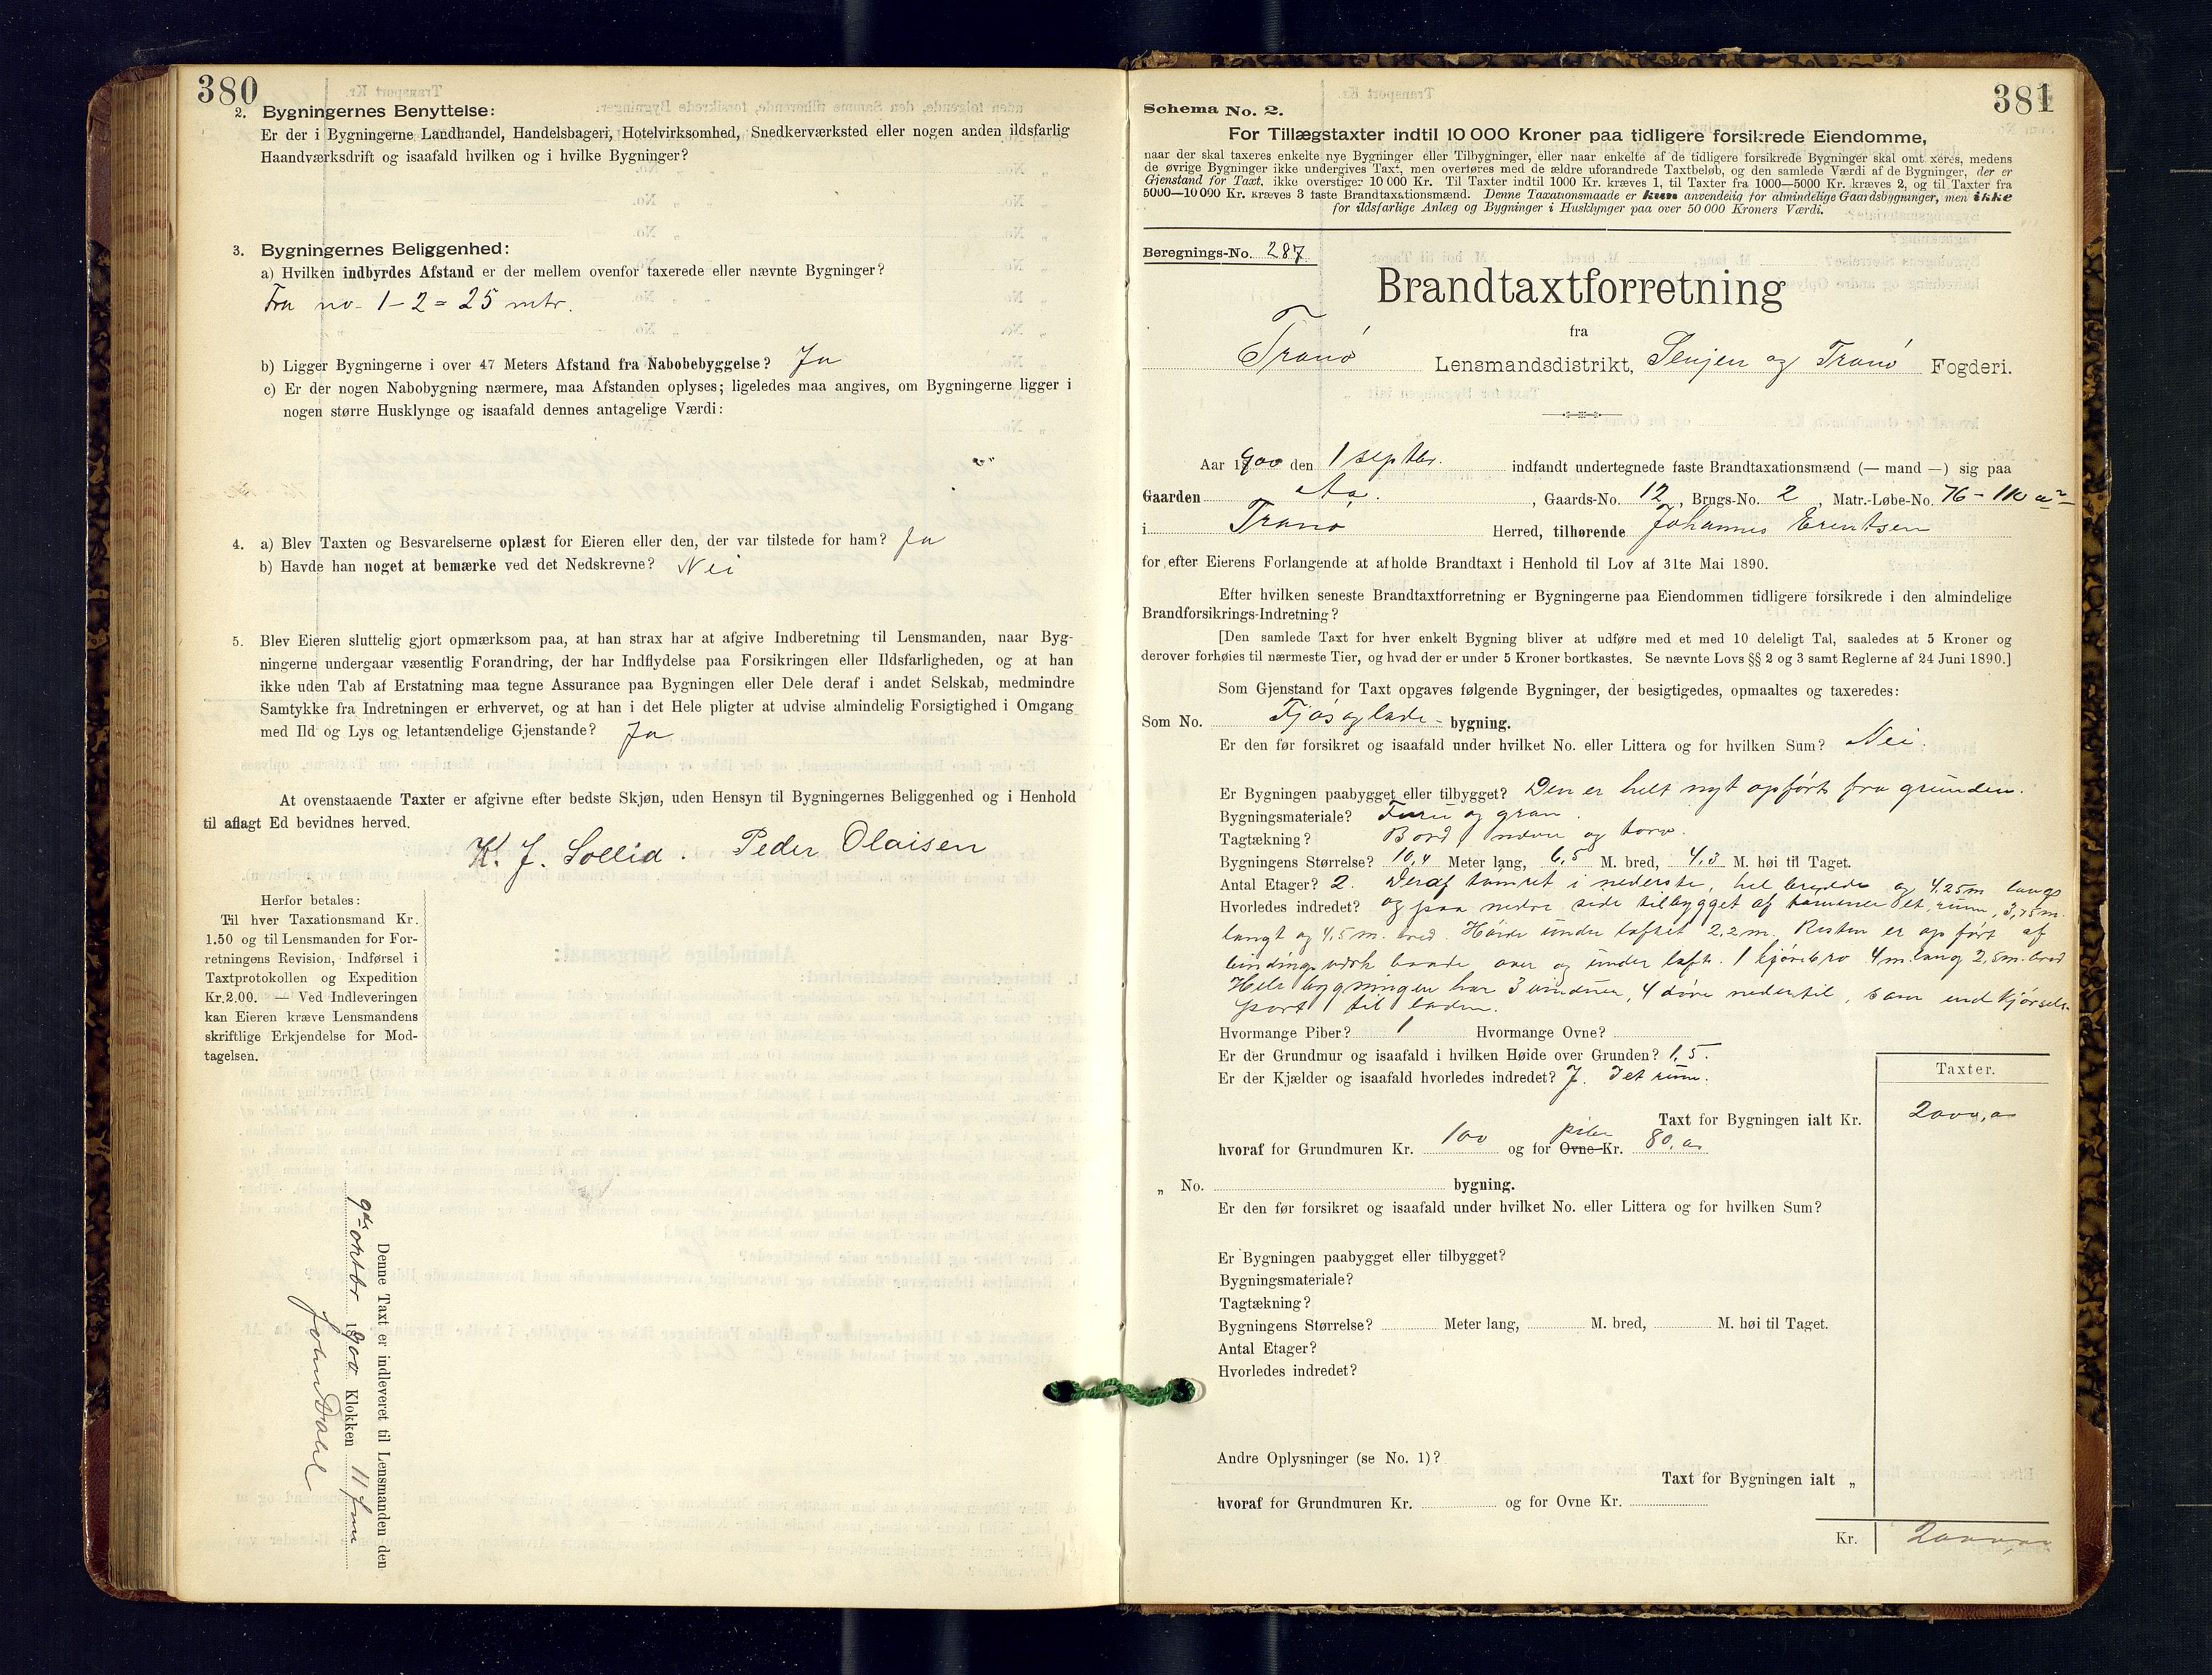 380
2. Bygningernes Benyttelse:
Er der i Bygningerne Landhandel, Handelsbageri, Hotelvirksomhed, Snedkerværksted eller nogen anden ildsfarlig
Haandværksdrift og isaafald hvilken og i hvilke Bygninger?
3. Bygningernes Beliggenhed:
a) Hvilken indbyrdes Afstand er der mellem ovenfor taxerede eller nævnte Bygninger?
Fra no. 1 - 2 = 25 mtr.
b) Ligger Bygningerne i over 47 Meters Afstand fra Nabobebyggelse? Ja
c) Er der nogen Nabobygning nærmere, maa Afstanden oplyses; ligeledes maa angives, om Bygningerne ligger i
nogen større Husklynge og isaafald dennes antagelige Værdi:
4. a) Blev Taxten og Besvarelserne oplæst for Eieren eller den, der var tilstede for ham? Ja
b) Havde han noget at bemærke ved det Nedskrevne? Nei
5. Blev Eieren sluttelig gjort opmærksom paa, at han strax har at afgive Indberetning til Lensmanden, naar Byg-
ningerne undergaar væsentlig Forandring, der har Indflydelse paa Forsikringen eller Ildsfarligheden, og at han
ikke uden Tab af Erstatning maa tegne Assurance paa Bygningen eller Dele deraf i andet Selskab, medmindre
Samtykke fra Indretningen er erhvervet, og at han i det Hele pligter at udvise almindelig Forsigtighed i Omgang
med Ild og Lys og letantændelige Gjenstande? Ja
At ovenstaaende Taxter er afgivne efter bedste Skjøn, uden Hensyn til Bygningernes Beliggenhed og i Henhold
til aflagt Ed bevidnes herved.
K. J. Sollid. Peder Olaisen
Herfor betales:
Til hver Taxationsmand Kr.
1.50 og til Lensmanden for For-
retningens Revision, Indførsel i
Taxtprotokollen og Expedition
Kr. 2.00. — Ved Indleveringen
kan Eieren kræve Lensmandens
skriftlige Erkjendelse for Mod-
tagelsen.
Denne Taxt er indleveret til Lensmanden den
9de oktbr 1900 Klokken 11 fm
John Dahl
381
Schema No. 2.
For Tillægstaxter indtil 10 000 Kroner paa tidligere forsikrede Eiendomme,
naar der skal taxeres enkelte nye Bygninger eller Tilbygninger, eller naar enkelte af de tidligere forsikrede Bygninger skal omtaxeres, medens
de øvrige Bygninger ikke undergives Taxt, men overføres med de ældre uforandrede Taxtbeløb, og den samlede Værdi af de Bygninger, der er
Gjenstand for Taxt, ikke overstiger 10 000 Kr. Til Taxter indtil 1000 Kr. kræves 1, til Taxter fra 1000—5000 Kr. kræves 2, og til Taxter fra
5000—10 000 Kr. kræves 3 faste Brandtaxationsmænd. Denne Taxationsmaade er kun anvendelig for almindelige Gaardsbygninger, men ikke
for ildsfarlige Anlæg og Bygninger i Husklynger paa over 50 000 Kroners Værdi.
Beregnings-No. 287
Brandtaxtforretning
fra
Tranø Lensmandsdistrikt, Senjen og Tranø Fogderi.
Aar 1900 den 1 septbr. indfandt undertegnede faste Brandtaxationsmænd (— mand —) sig paa
Gaarden Aa. , Gaards-No. 12, Brugs-No. 2, Matr.-Løbe-No. 76 - 110 a
i Tranø Herred, tilhørende Johannes Erentsen
for efter Eierens Forlangende at afholde Brandtaxt i Henhold til Lov af 31te Mai 1890.
Efter hvilken seneste Brandtaxtforretning er Bygningerne paa Eiendommen tidligere forsikrede i den almindelige
Brandforsikrings-Indretning?
[Den samlede Taxt for hver enkelt Bygning bliver at udføre med et med 10 deleligt Tal, saaledes at 5 Kroner og
derover forhøies til nærmeste Tier, og hvad der er under 5 Kroner bortkastes. Se nævnte Lovs §§ 2 og 3 samt Reglerne af 24 Juni 1890.]
Som Gjenstand for Taxt opgaves følgende Bygninger, der besigtigedes, opmaaltes og taxeredes:
Som No. Fjøs og lade - bygning.
Er den før forsikret og isaafald under hvilket No. eller Littera og for hvilken Sum? Nei.
Er Bygningen paabygget eller tilbygget? Den er helt nyt opført fra grunden.
Bygningsmateriale? Furu og gran.
Tagtækning? Bord, næver og torv.
Bygningens Størrelse? 10,4 Meter lang, 6,5 M. bred, 4,3 M. høi til Taget.
Antal Etager? 2. Deraf tømret i nederste, hel bredde og 4,25 m langs
Hvorledes indredet? og paa nedre side tilbygget af tømmer et rum, 3,75 m.
langt og 4,5 m. bred. Høide under loftet 2,2 m. Resten er opført af
bindingsværk baade over og under loft. 1 kjørebro 4 m. lang 2,5 m. bred
Hele bygningen har 3 vinduer, 4 døre nedentil, samt en kjørsels-
port til laden.
Hvormange Piber? 1 Hvormange Ovne?
Er der Grundmur og isaafald i hvilken Høide over Grunden? 1,5.
Er der Kjælder og isaafald hvorledes indredet? J. I et rum.
Taxter.
Taxt for Bygningen ialt Kr. 2000,00
hvoraf for Grundmuren Kr. 100 og for Ovne piber Kr. 80,00
„ No. bygning.
Er den før forsikret og isaafald under hvilket No. eller Littera og for hvilken Sum?
Er Bygningen paabygget eller tilbygget?
Bygningsmateriale?
Tagtækning?
Bygningens Størrelse? Meter lang, M. bred, M. høi til Taget.
Antal Etager?
Hvorledes indredet?
Andre Oplysninger (se No. 1)?
Taxt for Bygningen ialt „
hvoraf for Grundmuren Kr. og for Ovne Kr.
Kr. 2000,00